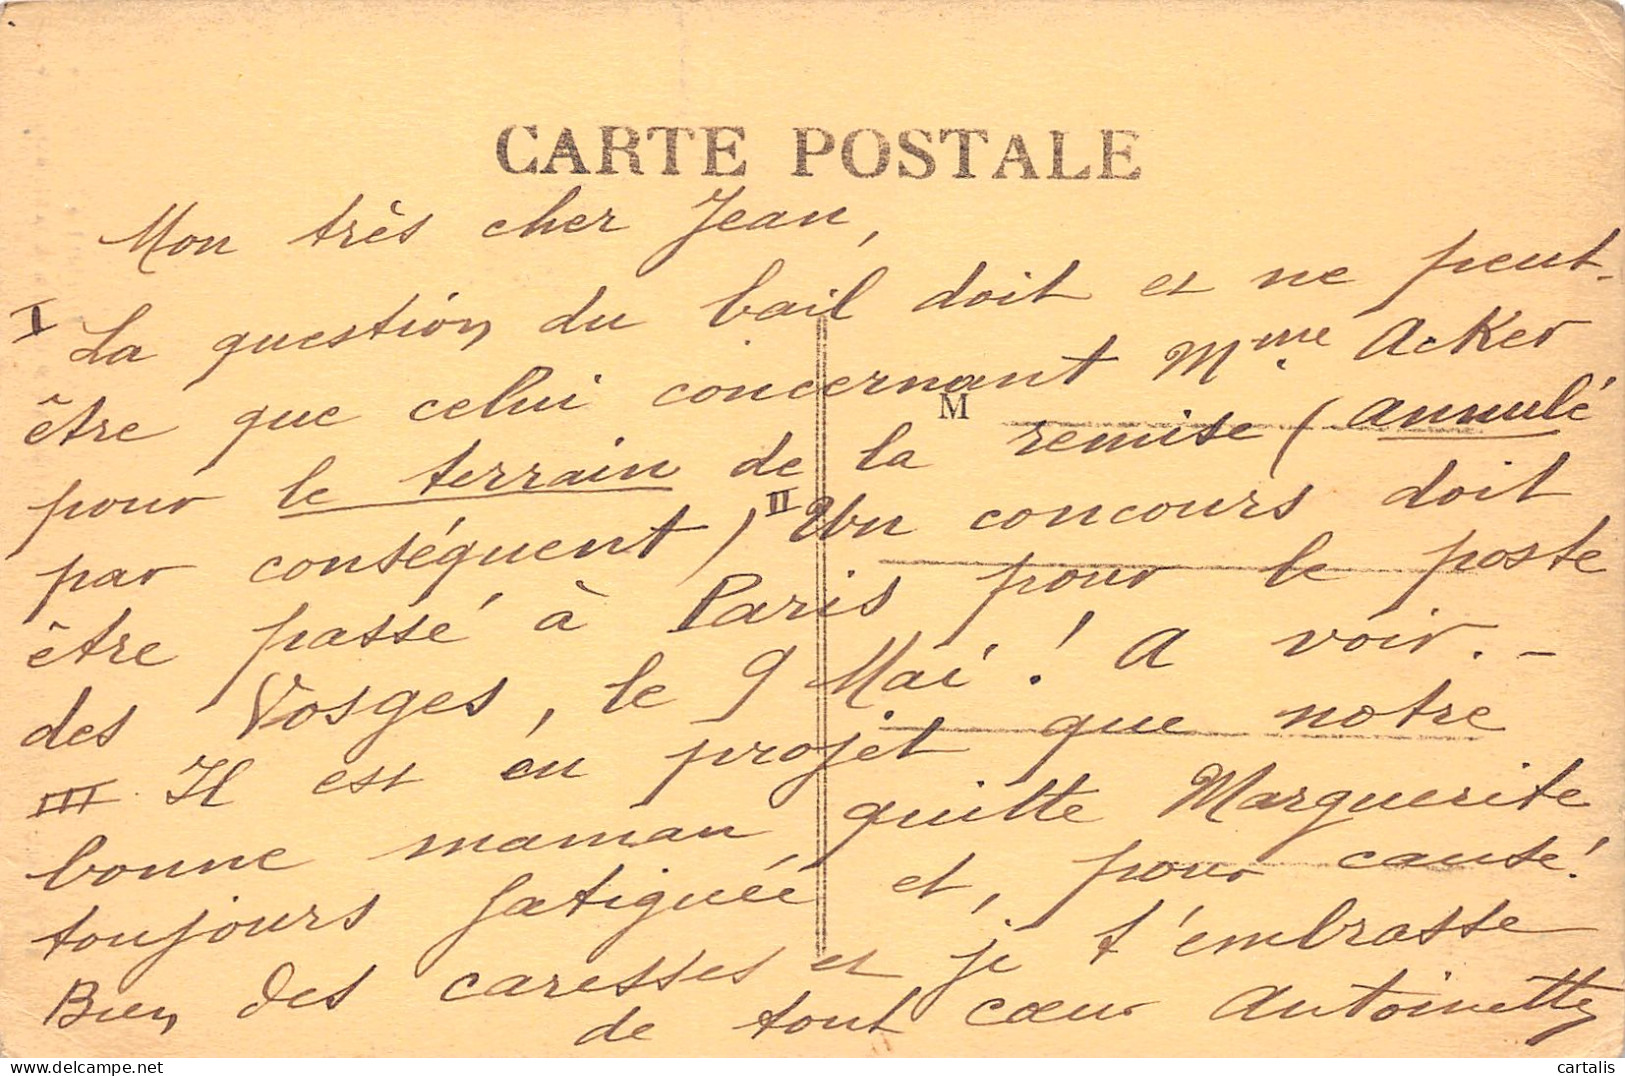 CARTE POSTALE
Mon très cher Jean,
I La question du bail doit et ne peut-
être que celui concernant Mme. Acker
M
pour le terrain de la remise (annulé
par conséquent) II Un concours doit
être passé à Paris pour le poste
des Vosges, le 9 Mai ! A voir. –
III Il est en projet que notre
bonne maman quitte Marguerite
toujours fatiguée et, pour cause !
Bien des caresses et je t'embrasse
de tout cœur Antoinette
cartalis
www.delcampe.net